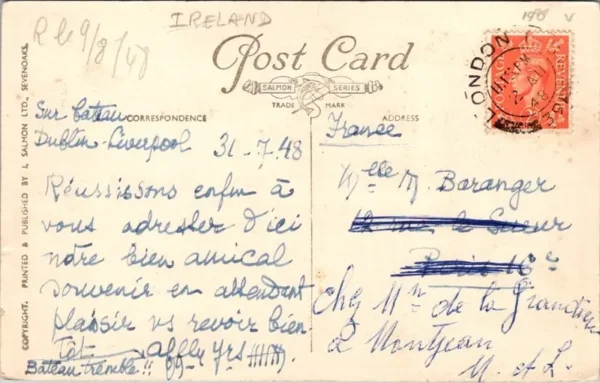 IRELAND
R le 9/8/48
Post Card
SALMON SERIES
TRADE MARK
CORRESPONDENCE
ADDRESS
LONDON
2 AU
48
REVENUE
Sur bateau
Dublin-Liverpool 31-7.48
Réussissons enfin à
vous adresser d'ici
notre bien amical
souvenir en attendant
plaisir vs revoir bien-
tôt - affly yrs
Bateau tremble!!
France
Melle M. Baranger
12 rue le Sueur
Paris 16e
Chez Mr de la
à Montjean
M. et L.
COPYRIGHT. PRINTED & PUBLISHED BY J. SALMON LTD., SEVENOAKS.